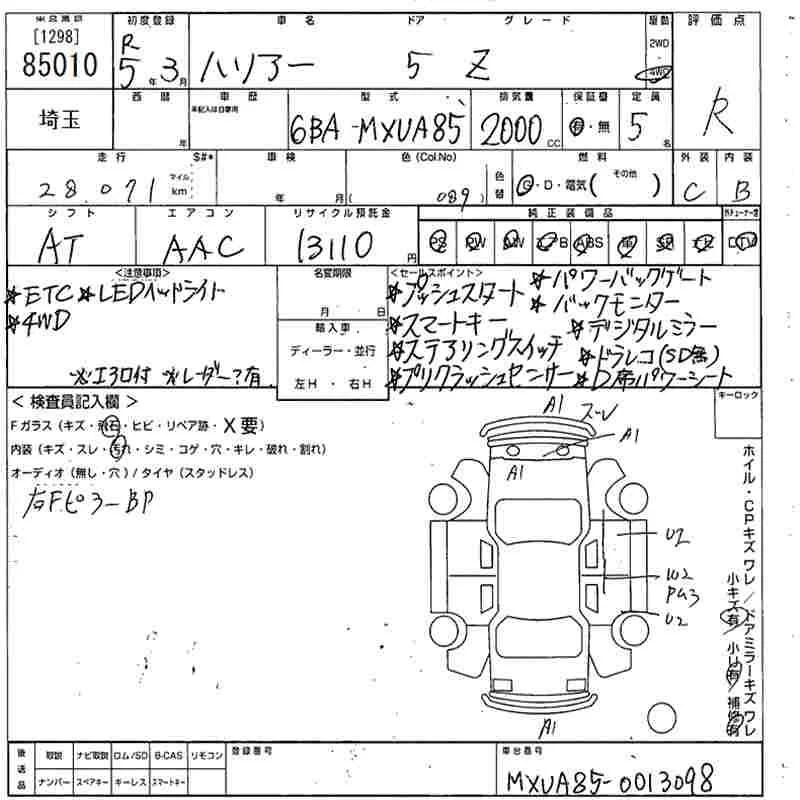 [1298]
85010
埼玉
初度登録
R
5年 3月
車名
ハリアー
ドア
5
グレード
Z
駆動
2WD
4WD
評価点
R
西暦
年
車歴
未記入は自家用
型式
6BA-MXUA85
排気量
2000 CC
保証書
有・無
定員
5名
走行
28,071
マイル
km
S#*
車検
年 月
色 (Col.No)
(089)
色替
燃料
G・D・電気( その他 )
外装
C
内装
B
シフト
AT
エアコン
AAC
リサイクル預託金
13110円
純正装備品
PS PW AW エアB ABS 革 SR TV
<注意事項>
☆ETC ☆LEDヘッドライト
☆4WD
※エアロ付 ※レーダー?有
名変期限
月 日
輸入車
ディーラー・並行
左H・右H
<セールスポイント>
☆プッシュスタート ☆パワーバックゲート
☆スマートキー ☆バックモニター
☆ステアリングスイッチ ☆デジタルミラー
☆プリクラッシュセンサー ☆ドラレコ(SD無)
☆D席パワーシート
<検査員記入欄>
Fガラス (キズ・飛石・ヒビ・リペア跡・X要)
内装 (キズ・スレ・汚れ・シミ・コゲ・穴・キレ・破れ・割れ)
オーディオ (無し・穴) / タイヤ (スタッドレス)
右Fピラー BP
キーロック
A1 スレ
A1
A1
U2
W2
PA3
U2
A1
ホイル・CPキズ ワレ / ドアミラーキズ ワレ
小キズ有 小U有 補修有
後送品
取説 ナビ取説 ロム/SD B-CAS リモコン
ナンバー スペアキー キーレス スマートキー
登録番号
車台番号
MXUA85-0013098